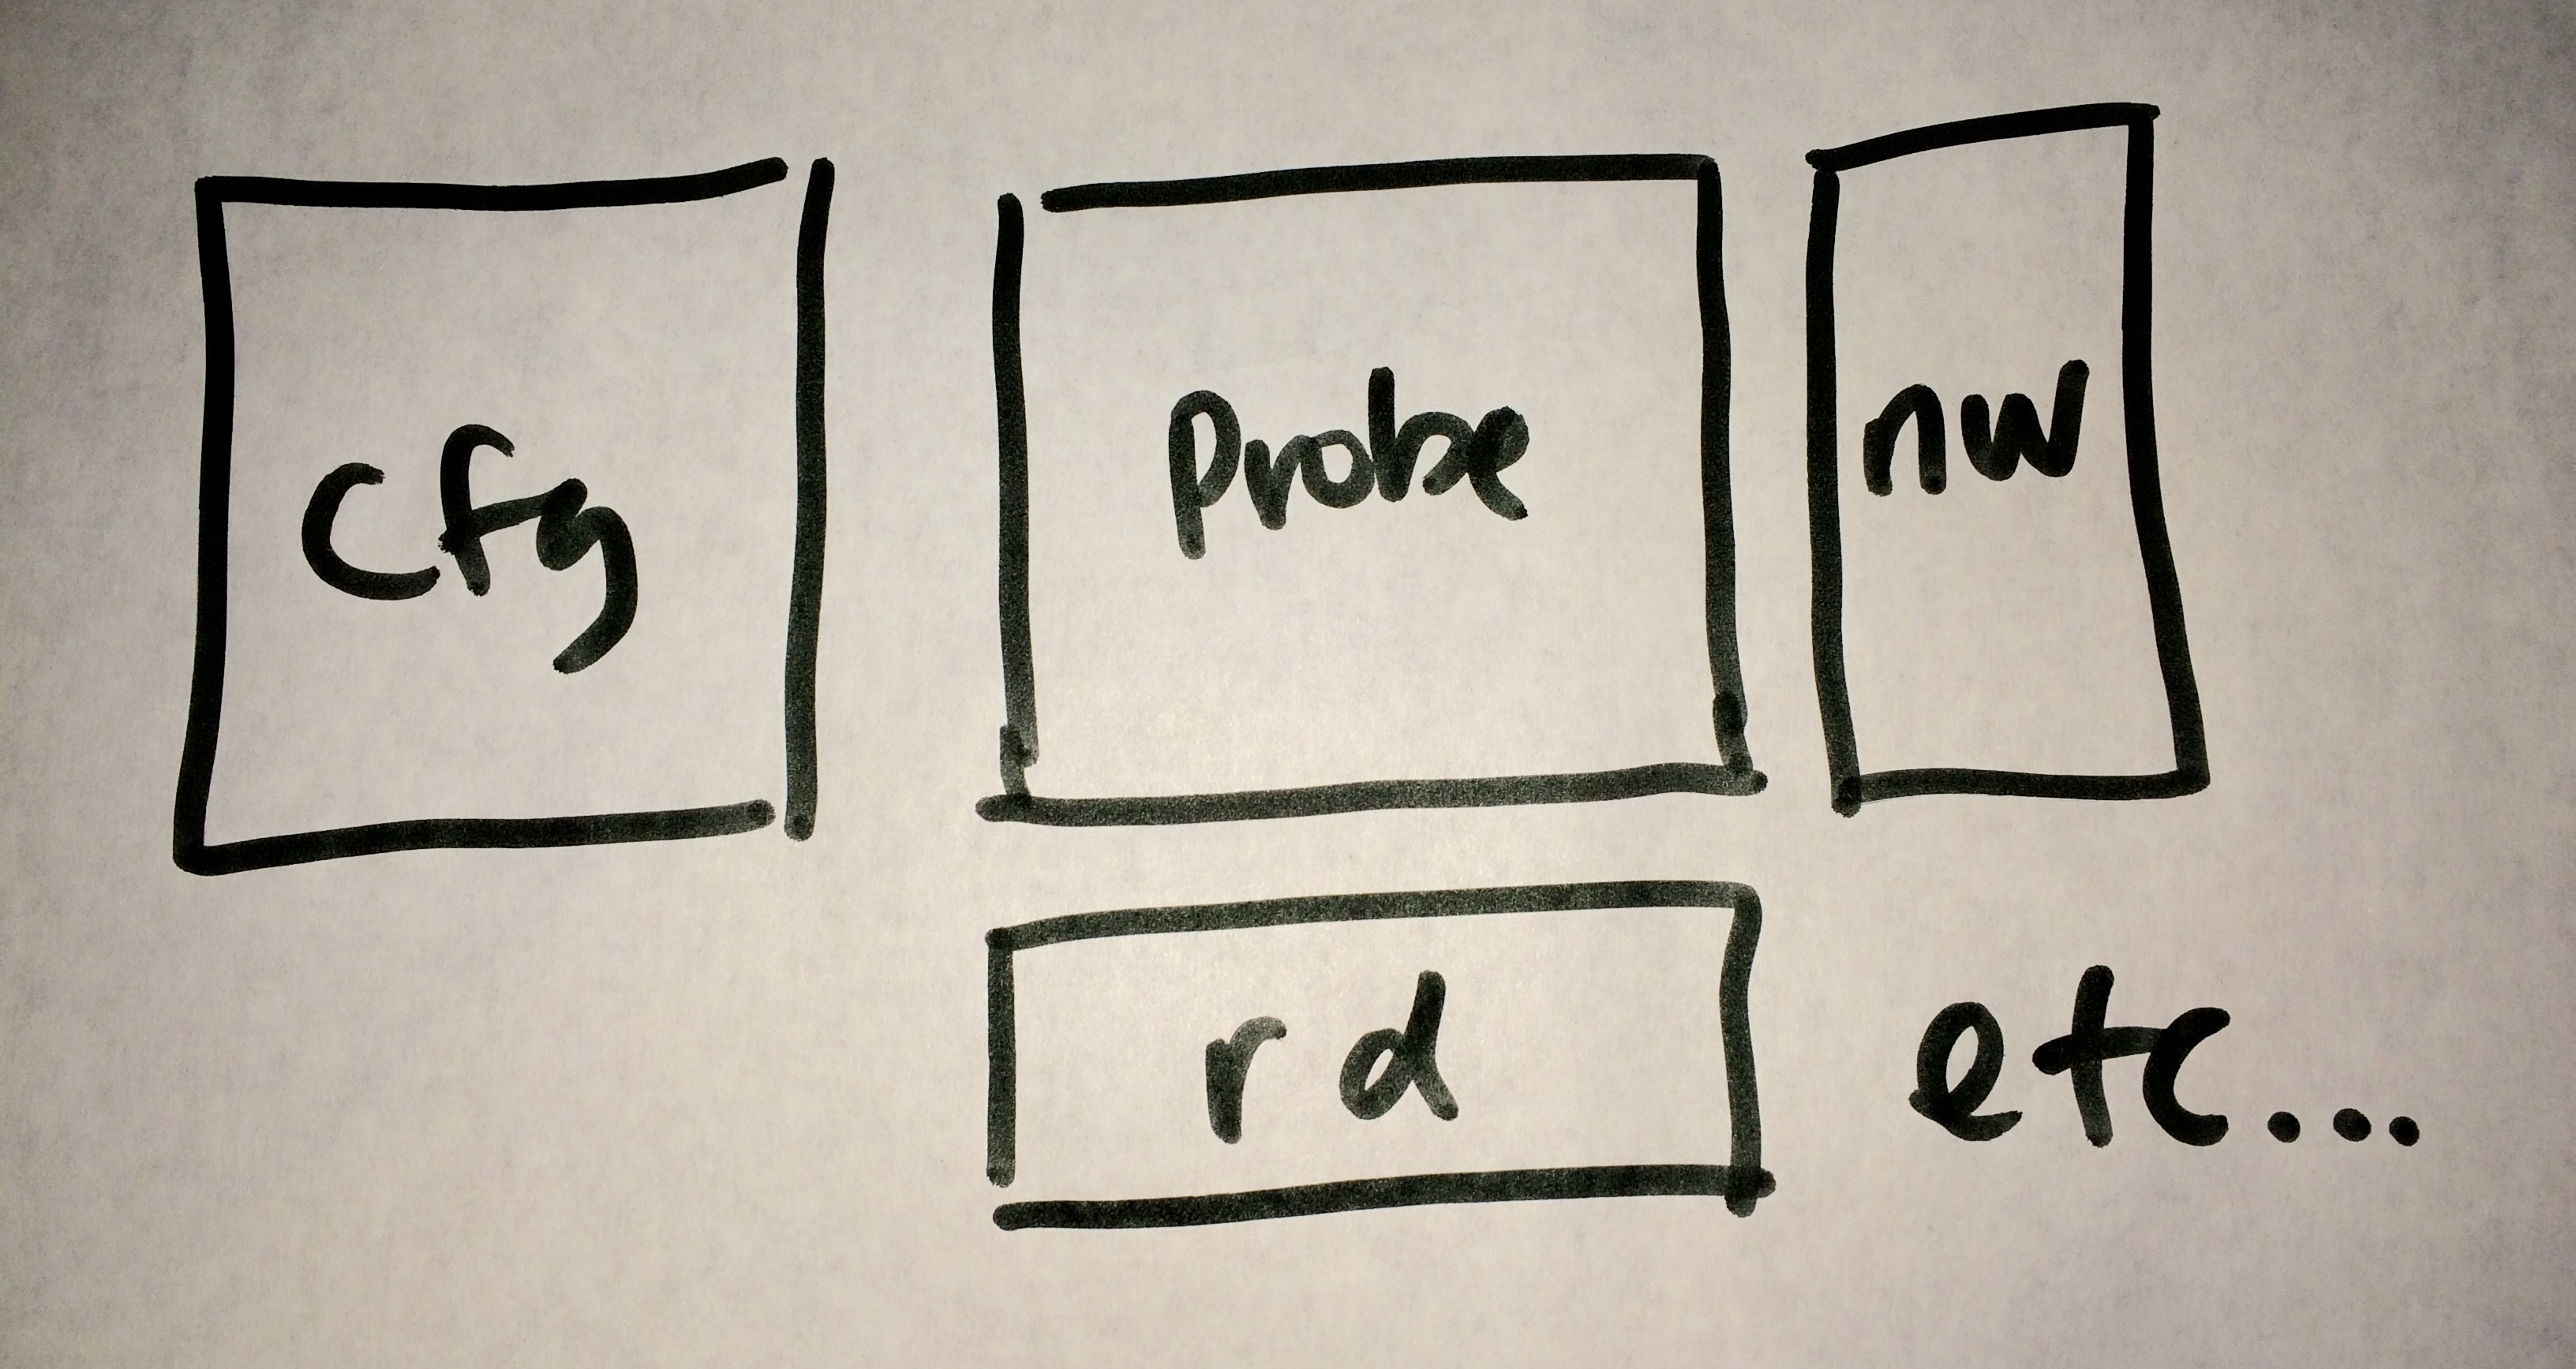 cfg
Probe
nw
rd
etc...